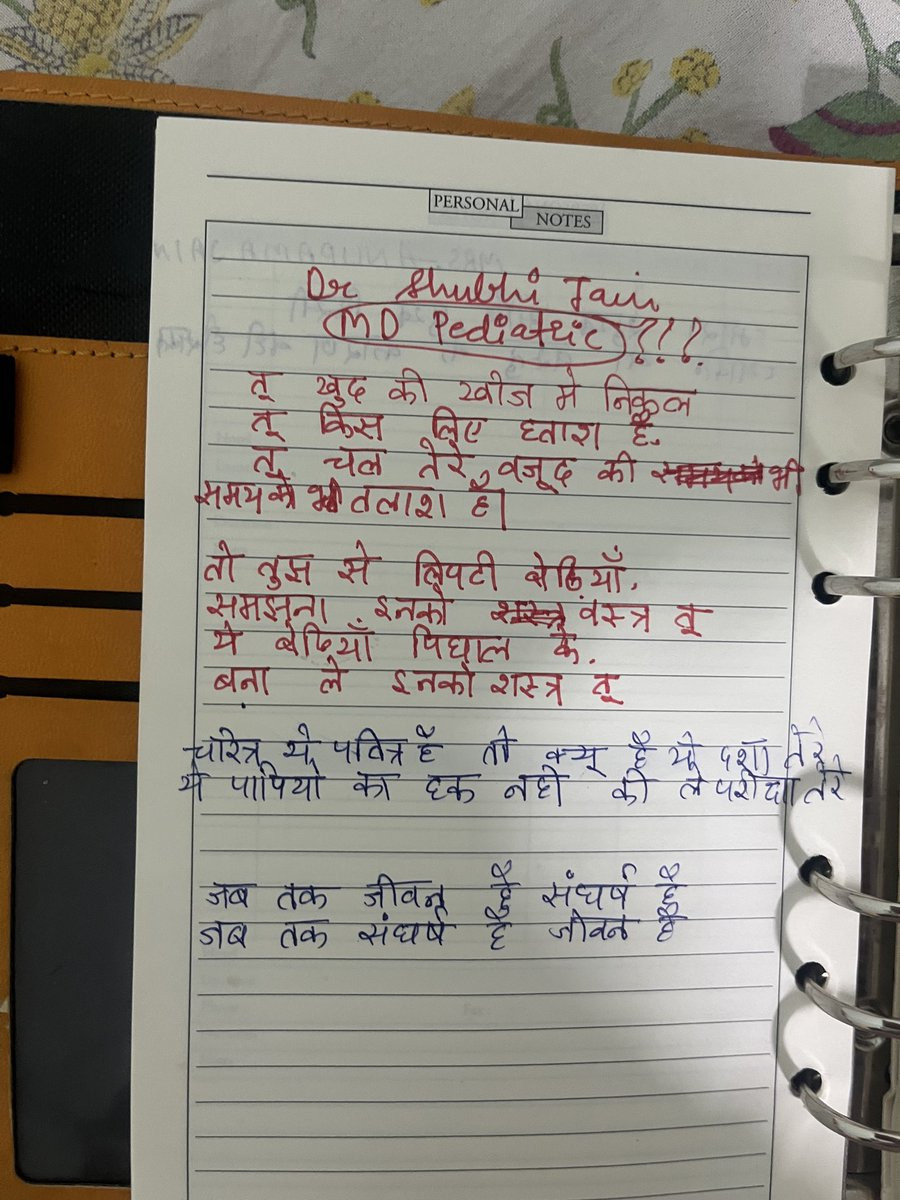 PERSONAL
NOTES
Dr Shubhi Jain
MD Pediatric ???
तू खुद की खोज मे निकल
तू किस लिए हताश है.
तू चल तेरे वजूद की भी
समय को भी तलाश है।
तो तुझ से लिपटी बेढियाँ.
समझना इनको वस्त्र तू
ये बेढियाँ पिघाल के.
बना ले इनको शस्त्र तू
चरित्र ये पवित्र है तो क्यू है ये दशा तेरे
ये पापियो का हक नही की ले परीक्षा तेरे
जब तक जीवन है संघर्ष है
जब तक संघर्ष है जीवन है